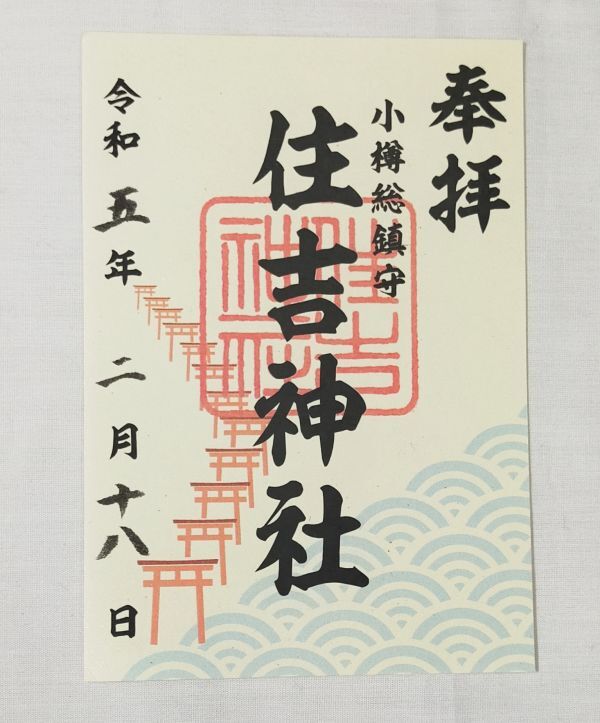 奉拝
小樽総鎮守
住吉神社
令和五年二月十八日
住吉
神社